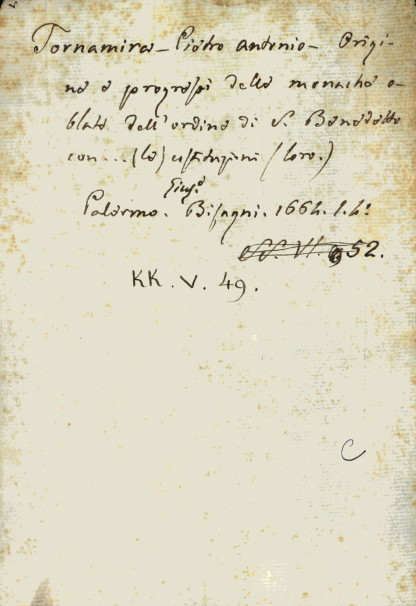 Tornamira - Pietro Antonio - Origi-
ne e progressi delle monache o-
blate dell'ordine di S. Benedetto
con...(le) costituzioni (loro.)
Gius.e
Palermo. Bisagni. 1664. 1. 4º
52.
KK. V. 49.
C